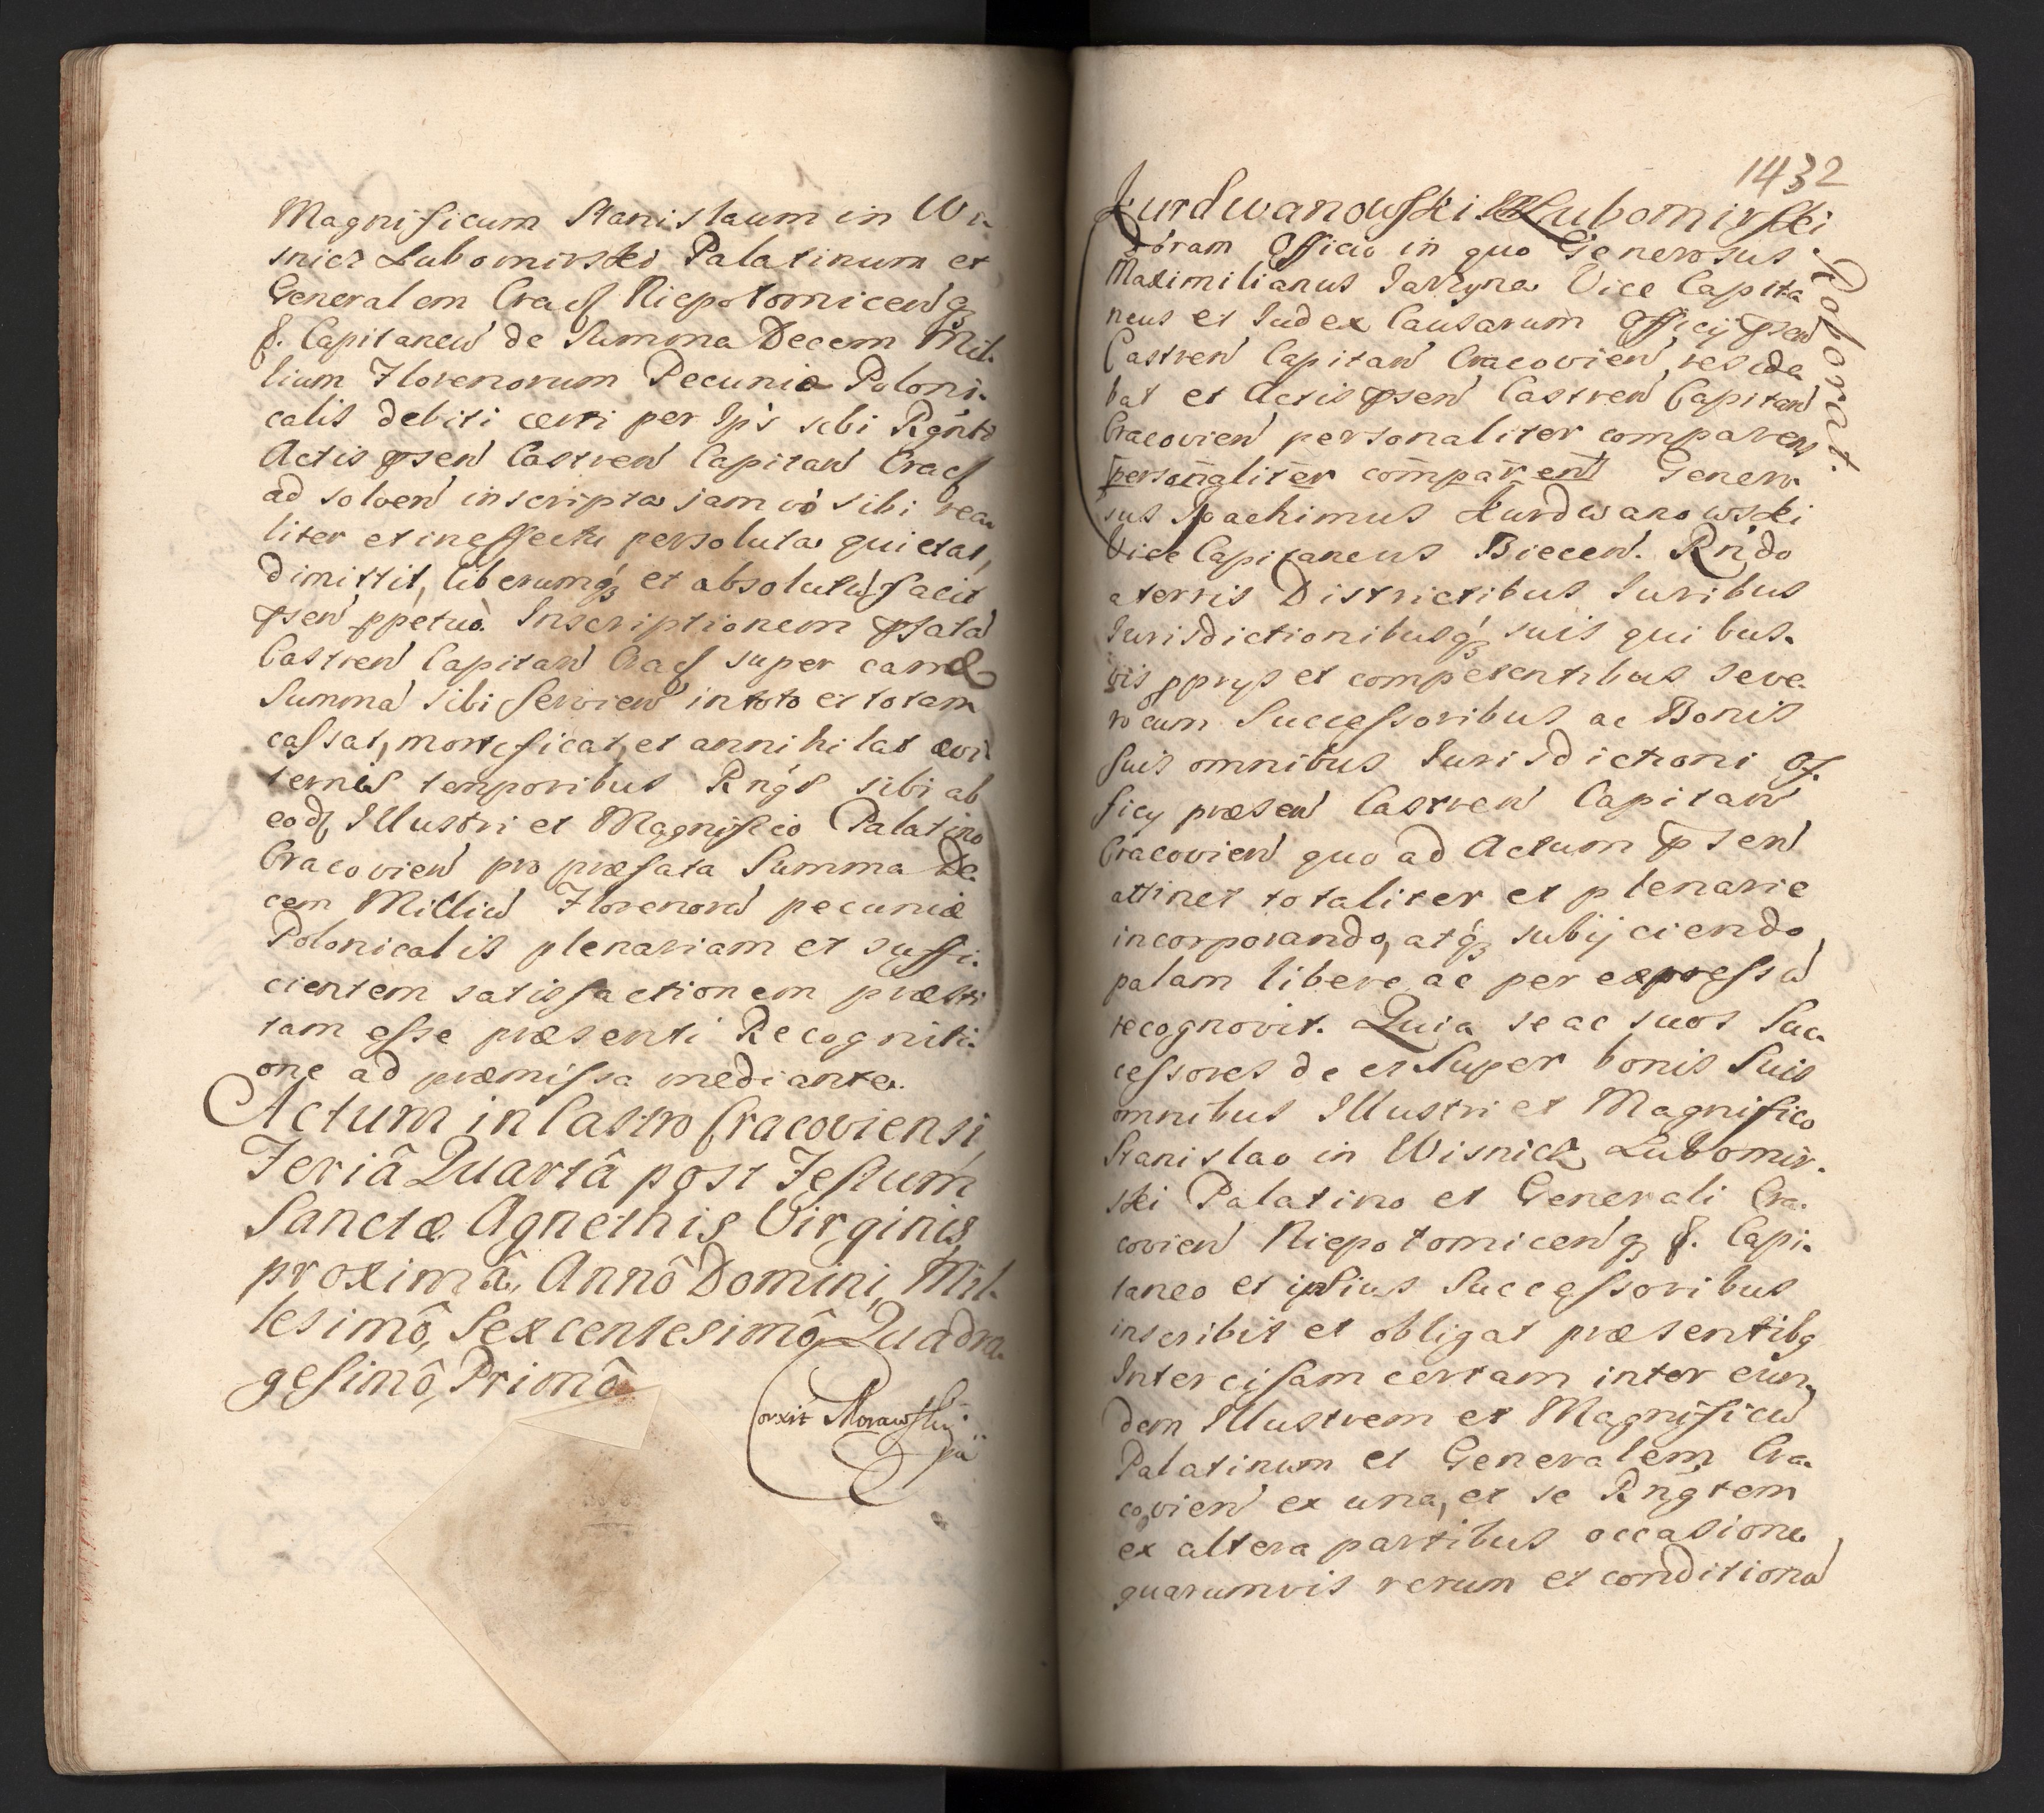 Magnificum Stanislaum in Wi-
snicz Lubomirski Palatinum et
Generalem Crac Niepolomicenq
&. Capitaneū de Summa Decem Mil-
lium Florenorum Pecuniæ Poloni-
calis debiti certi per Ips sibi Rgnti
Actis psen Castren Capitan Crac
ad solven inscripta jam vo sibi rea
liter et in effectu persoluta quietat,
dimittit, liberumq et absolutū facit
psen ppetuo. Inscriptionem psatā
Castren Capitan Crac super eand
Summā sibi servien in toto et totam
cassat, mortificat, et annihilat ævi-
ternis temporibus Rngs sibi ab
eod Illustri et Magnifico Palatino
Cracovien pro præfata Summa De-
cem Milliū Florenorū pecuniæ
Polonicalis plenariam et suffi-
cientem satisfactionem præsti
tam esse præsenti Recogniti-
one ad præmissa mediante.
Actum in Castro Cracoviensi
Feriâ Quartâ post Festum
Sanctæ Agnethis Virginis
proximâ, Annô Domini Mil-
lesimô, Sexcentesimô Quadra-
gesimô, Primô
Corxit Morawski
1432
Kurdwanowski Lubomirski
Roborat.
Coram Officio in quo Generosus
Maximilianus Jarzyna Vice Capita
neus et Judex Causarum Officij psen
Castren Capitan Cracovien reside
bat et Actis psen Castren Capitan
Cracovien personaliter comparens
personaliter comparen Genero
sus Joachimus Kurdwanowski
Vice Capitaneus Biecen. Rndo
a terris Districtibus Juribus
Jurisdictionibusq suis quibus-
vis pprijs et competentibus seve-
ro cum Successoribus ac Bonis
Suis omnibus Jurisdictioni Of-
ficy præsen Castren Capitan
Cracovien quo ad Actum psen
attinet totaliter et plenarie
incorporando, atq subijciendo,
palam libere ac per expressū
recognovit. Quia se ac suos Suc-
cessores de et super bonis Suis
omnibus Illustri et Magnifico
Stanislao in Wisnicz Lubomir-
ski Palatino et Generali Cra-
covien Niepolomicenq &. Capi-
taneo et ipsius Successoribus
inscribit et obligat præsentibq
Intercisam certam inter eun-
dem Illustrem et Magnificū
Palatinum et Generalem Cra-
covien ex una, et se Rngtem
ex altera partibus occasione
quarumvis rerum et conditionū